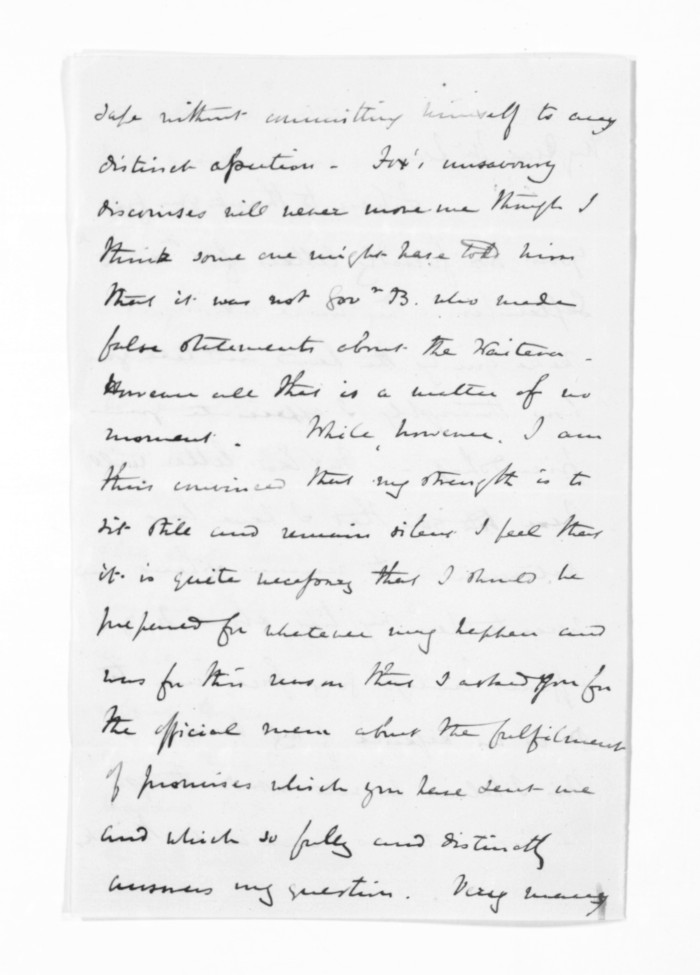 safe without committing himself to any
distinct assertion - Fox's unsavoury
discourses will never move me though I
think some one might have told him
that it was not Govr B. who made
false statements about the Waitara -
However all that is a matter of no
moment. While, however, I am
thus convinced that my strength is to
sit still and remain silent I feel that
it is quite necessary that I should be
prepared for whatever may happen and
was for this reason that I asked you for
the official mem about the fulfilment
of promises which you have sent me
and which so fully and distinctly
answers my question. Very many